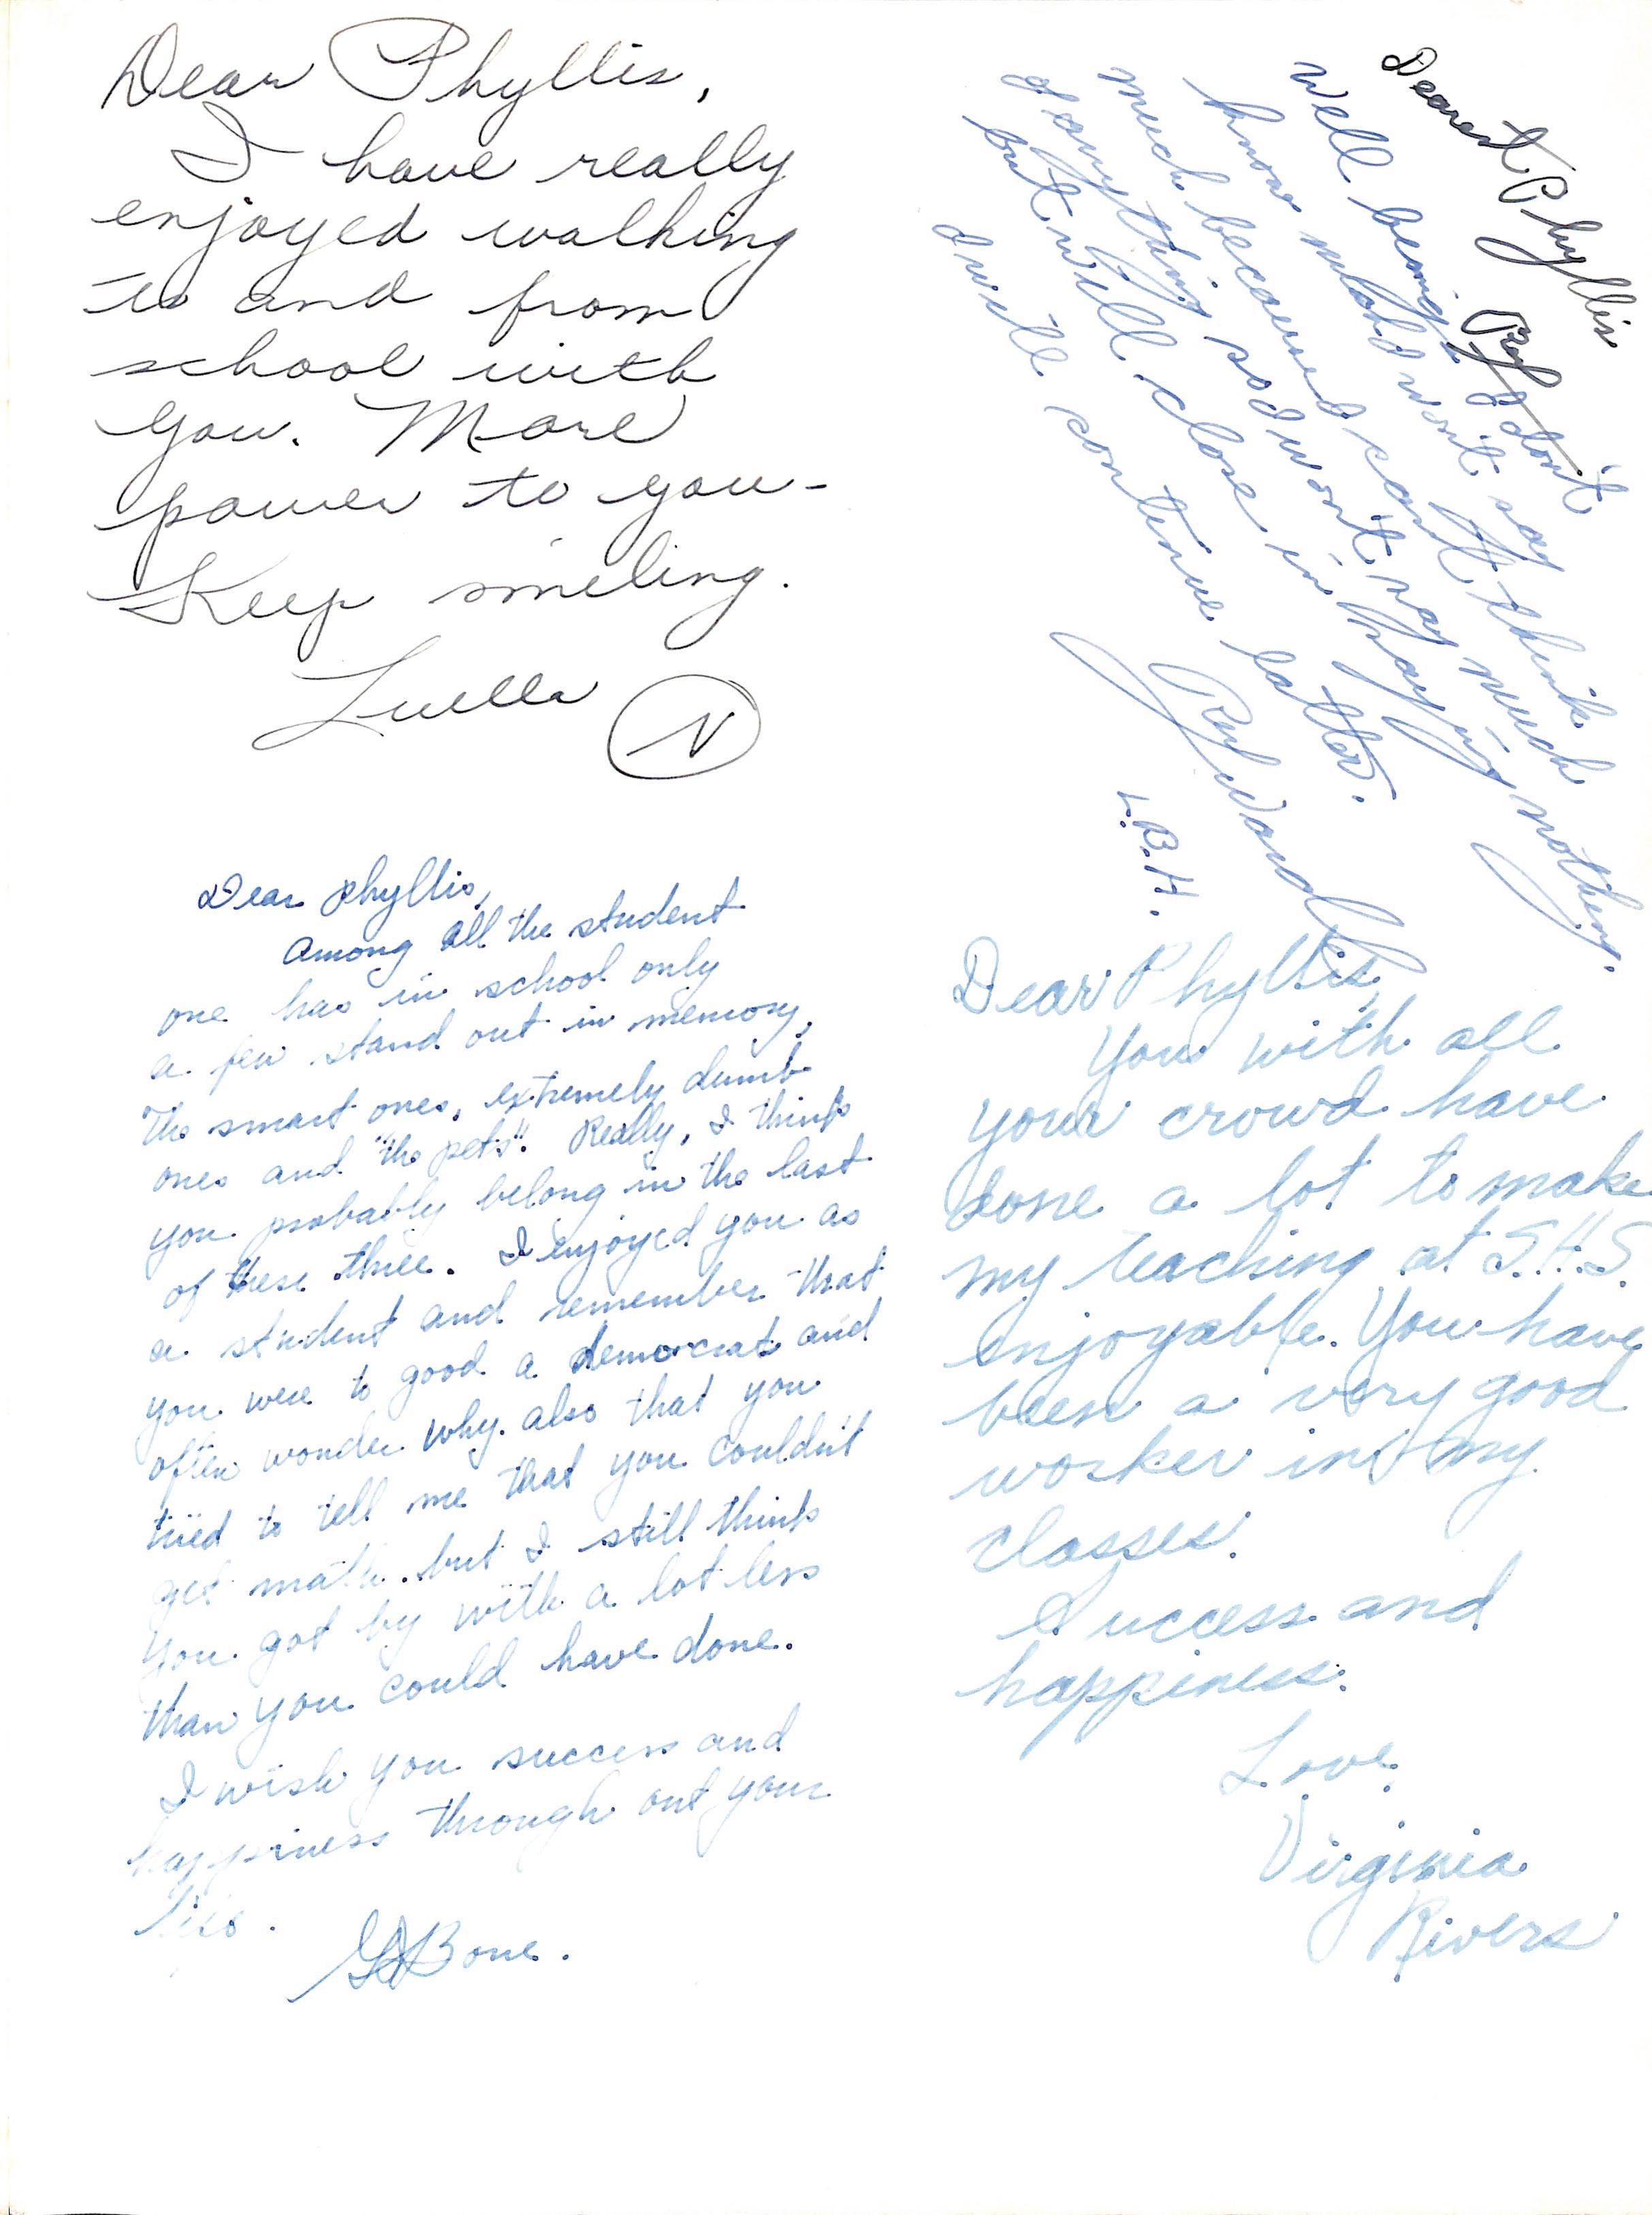 Dear Phyllis,
I have really
enjoyed walking
to and from
school with
you. More
power to you-
Keep smiling.
Luella
N
Dearest Phyllis
Well being I don't
know much I won't say
much because I can't think
of anything so I won't say much
but will close in saying nothing.
I will continue latter.
L.B.H.
Dear Phyllis,
Among all the student
one has in school only
a few stand out in memory,
The smart ones, extremely dumb
ones and "the pets". Really, I think
you probably belong in the last
of these three. I enjoyed you as
a student and remember that
you were to good a democrat and
often wonder why. also that you
tried to tell me that you couldn't
get math. but I still think
you got by with a lot less
than you could have done.
I wish you success and
happiness through out your
life.
Bone.
Dear Phyllis,
You with all
your crowd have
done a lot to make
my teaching at S.H.S.
enjoyable. You have
been a very good
worker in my
classes.
Success and
happiness.
Love,
Virginia
Rivers